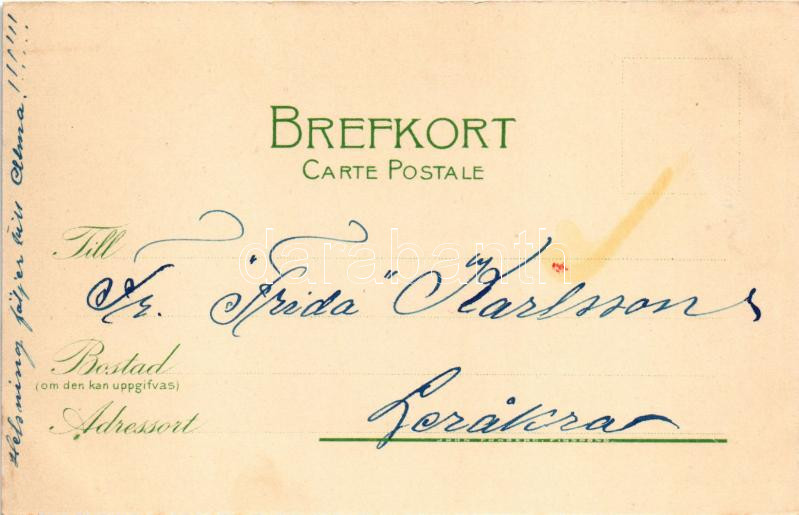 BREFKORT
CARTE POSTALE
Till
Fr. "Frida" Karlsson
Bostad
(om den kan uppgifvas)
Leråkra
Adressort
Helsning följer till Alma.!!!!!!
darabanth